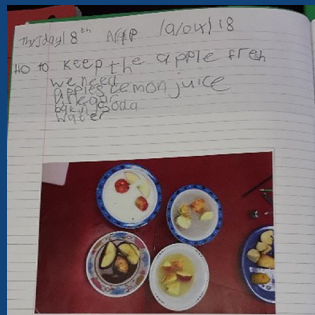 Thysday 18th Nap 19/04/18
Ho to keep the apple fresh
we need
apples Lemon juice
vinegar
baking Soda
water